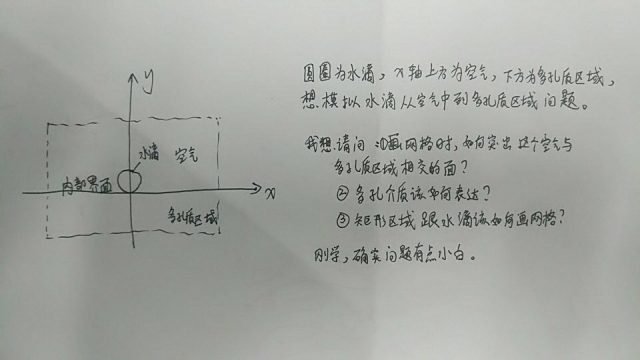 y
水滴 空气
内部界面
x
多孔质区域
圆圈为水滴，x轴上方为空气，下方为多孔质区域，
想模拟水滴从空气中到多孔质区域问题。
我想请问 ①画网格时，如何突出这个空气与
多孔质区域相交的面？
②多孔介质该如何表达？
③矩形区域跟水滴该如何画网格？
刚学，确实问题有点小白。